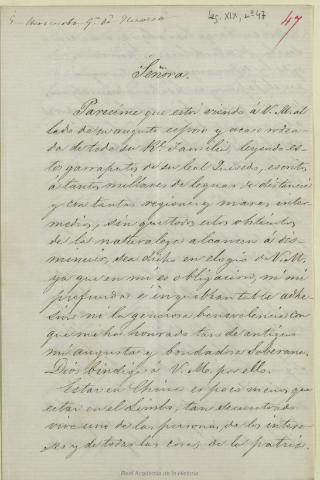 Leg. XIX, nº 47
47
Señora.
Paréceme que estoy viendo á V. M. al
lado de su augusto esposo y acaso rodea
da de toda su Rl. Familia, leyendo es
tos garrapatos de su leal Quesada, escritos
á tantos millares de leguas de distancia
y con tantas regiones y mares inter
medios, sin que todos estos obstáculos
de la naturaleza alcancen á des
menuir, sea dicho en elogio de V. M.
ya que en mí es obligación, ni mi
profunda é inquebrantable adhe
sión ni la generosa benevolencia con
que me ha honrado tan de antiguo
mi augusta y bondadosa Soberana.
Dios bendiga á V. M. por ello.
Estar en China es poco menos que
estar en el Limbo, tan desconectado
vive uno de las personas, de los intere
ses y de todas las cosas de la patria.
Real Academia de la Historia